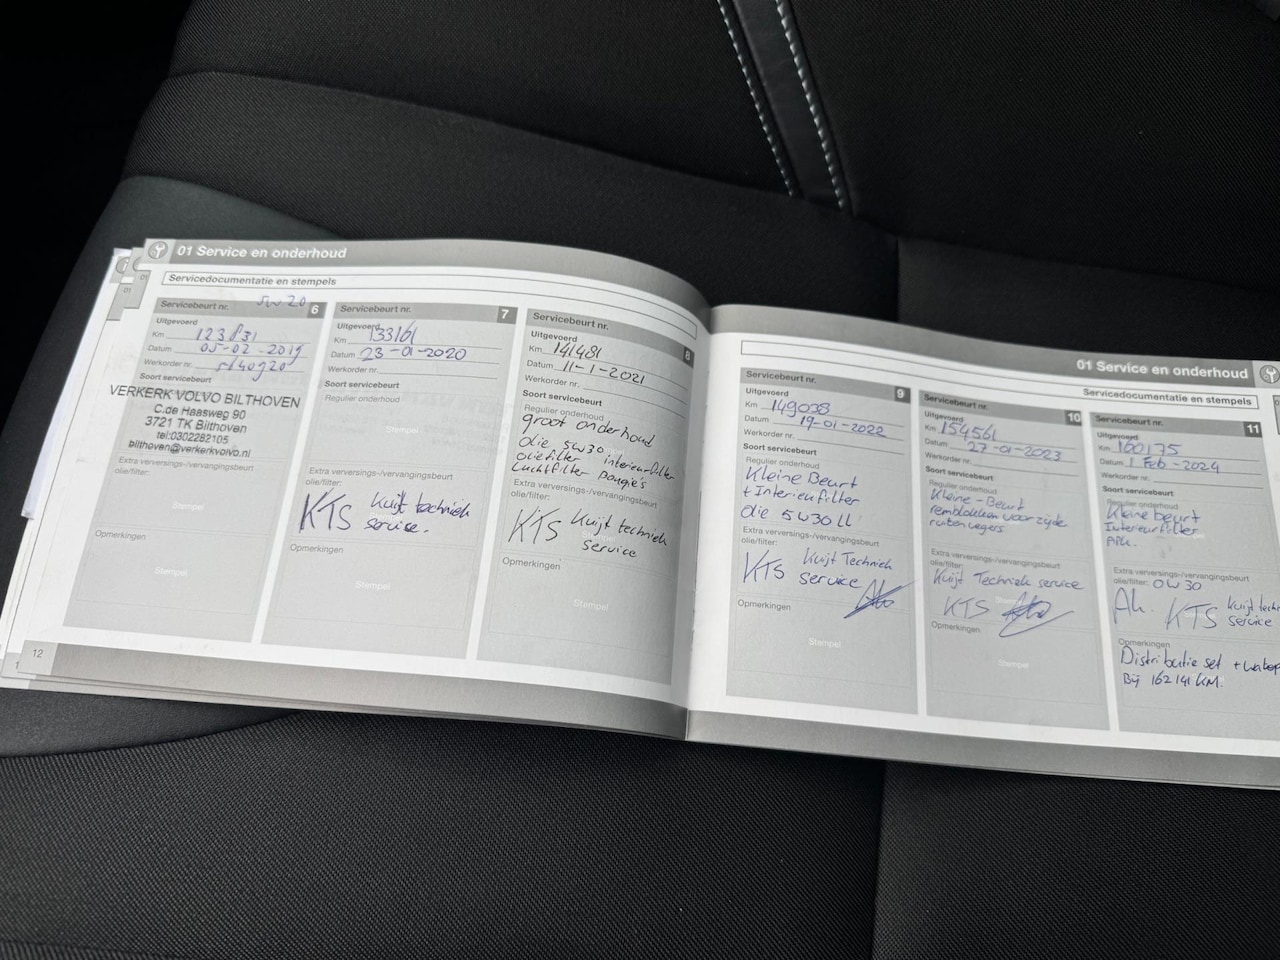 01 Service en onderhoud
Servicedocumentatie en stempels
5w20
Servicebeurt nr. 6
Uitgevoerd
Km 123831
Datum 05-02-2019
Werkorder nr.
Soort servicebeurt
Regulier onderhoud
VERKERK VOLVO BILTHOVEN
C.de Haasweg 90
3721 TK Bilthoven
tel:0302282105
bilthoven@verkerkvolvo.nl
Extra verversings-/vervangingsbeurt
olie/filter:
Stempel
Opmerkingen
Stempel
12
Servicebeurt nr. 7
Uitgevoerd
Km 133161
Datum 23-01-2020
Werkorder nr.
Soort servicebeurt
Regulier onderhoud
Stempel
Extra verversings-/vervangingsbeurt
olie/filter:
KTS Kuijt techniek
service.
Opmerkingen
Stempel
Servicebeurt nr. 8
Uitgevoerd
Km 141481
Datum 11-1-2021
Werkorder nr.
Soort servicebeurt
Regulier onderhoud
groot onderhoud
olie 5W30 interieurfilter
oliefilter
luchtfilter bougie's
Extra verversings-/vervangingsbeurt
olie/filter:
KTS Kuijt techniek
service
Opmerkingen
Stempel
01 Service en onderhoud
Servicedocumentatie en stempels
Servicebeurt nr. 9
Uitgevoerd
Km 149038
Datum 19-01-2022
Werkorder nr.
Soort servicebeurt
Regulier onderhoud
Kleine Beurt
+ Interieurfilter
olie 5W30 LL
Extra verversings-/vervangingsbeurt
olie/filter:
KTS Kuijt Techniek
service
Opmerkingen
Stempel
Servicebeurt nr. 10
Uitgevoerd
Km 154561
Datum 27-01-2023
Werkorder nr.
Soort servicebeurt
Regulier onderhoud
Kleine-Beurt
remblokken voorzijde
ruitenwegers
Extra verversings-/vervangingsbeurt
olie/filter:
Kuijt Techniek service
KTS
Opmerkingen
Stempel
Servicebeurt nr. 11
Uitgevoerd
Km 160175
Datum 1 Feb-2024
Werkorder nr.
Soort servicebeurt
Regulier onderhoud
Kleine beurt
Interieurfilter
APK.
Extra verversings-/vervangingsbeurt
olie/filter: 0W30
KTS Kuijt techn
service
Opmerkingen
Distributie set + waterp
Bij 162141 KM.